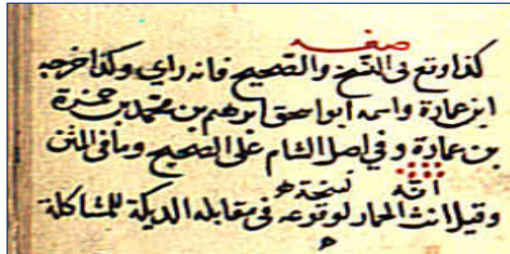 صفه
كذا وقع فى النسخ والصحيح فانه راي وكذا خرجه
ابن عمارة واسمه ابو اسحق ابرهيم بن محمد بن حمزة
بن عمارة وفي اصل الشام على الصحيح وما فى المتن
انه نسخة
وقيل انث الحمار لوقوعه فى مقابله الديكة للمشاكلة